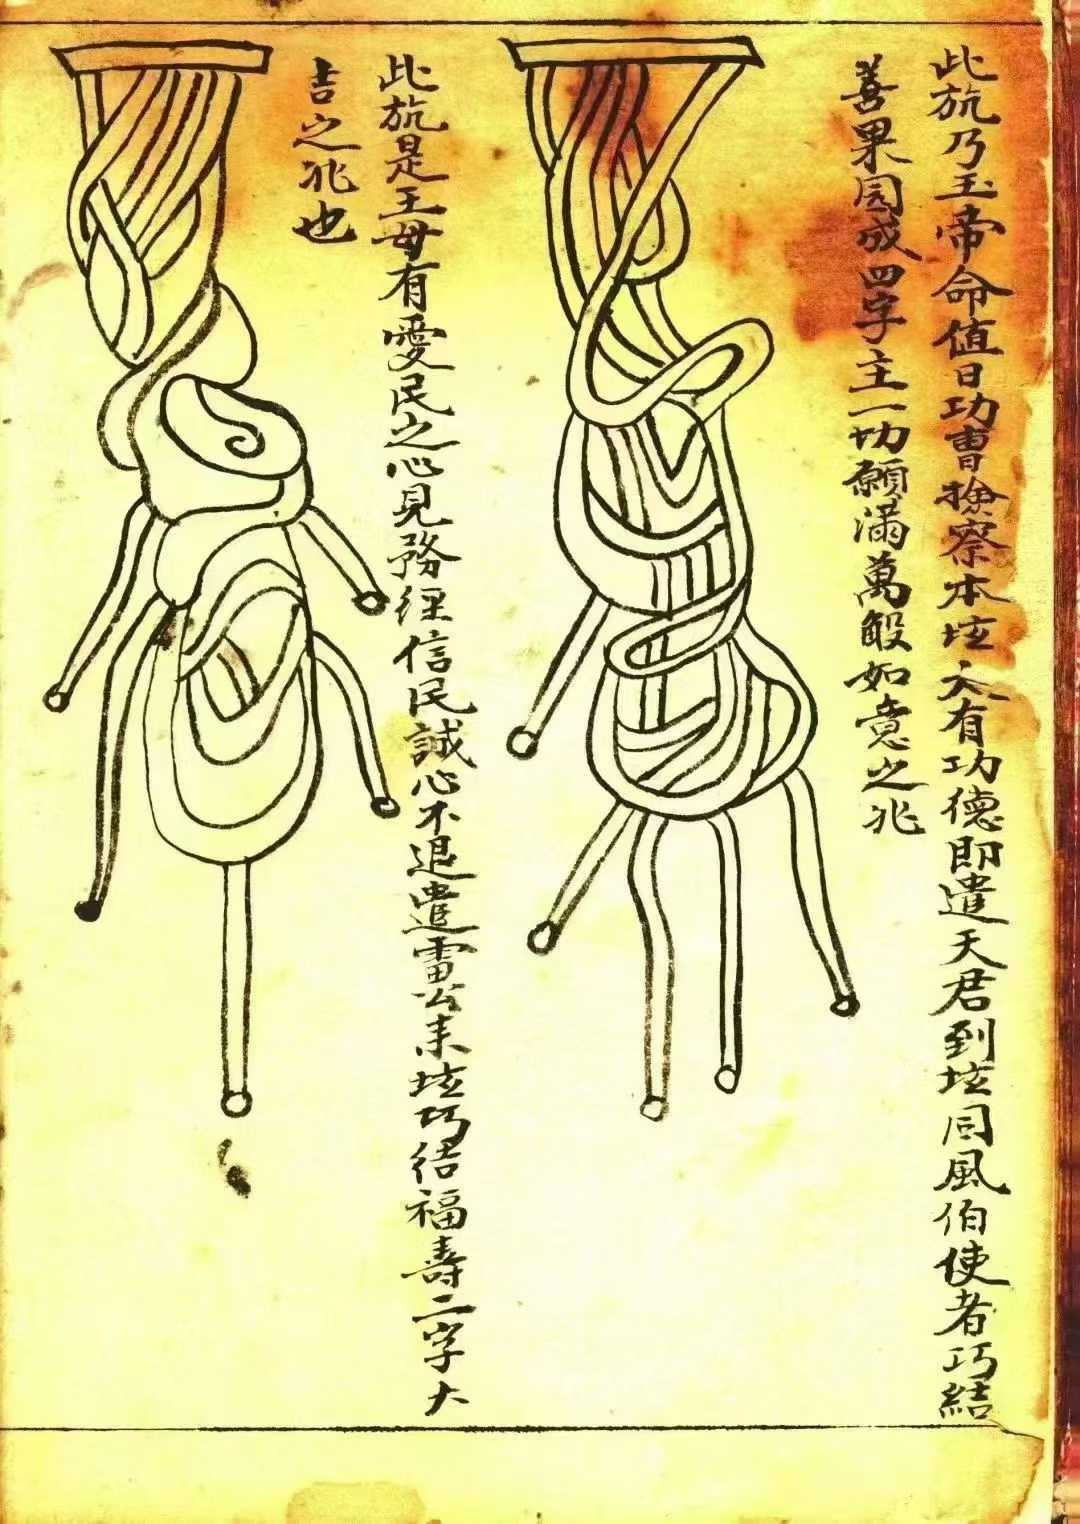 此旈乃玉帝命值日功曹撿察本坛太有功德即遣天君到坛同风伯使者巧結
善果园成四字主一切願满萬般如意之兆
此旈是王母有愛民之心見务经信民誠心不退遣雷公来坛巧结福壽二字大
吉之兆也